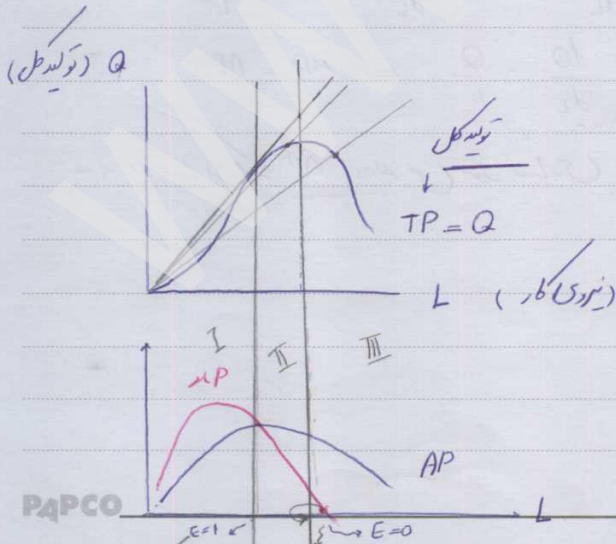 Q (تولید کل)
تولید کل
↓
TP = Q
L (نیروی کار)
I II III
MP
AP
PAPCO
L
E=1 E=0